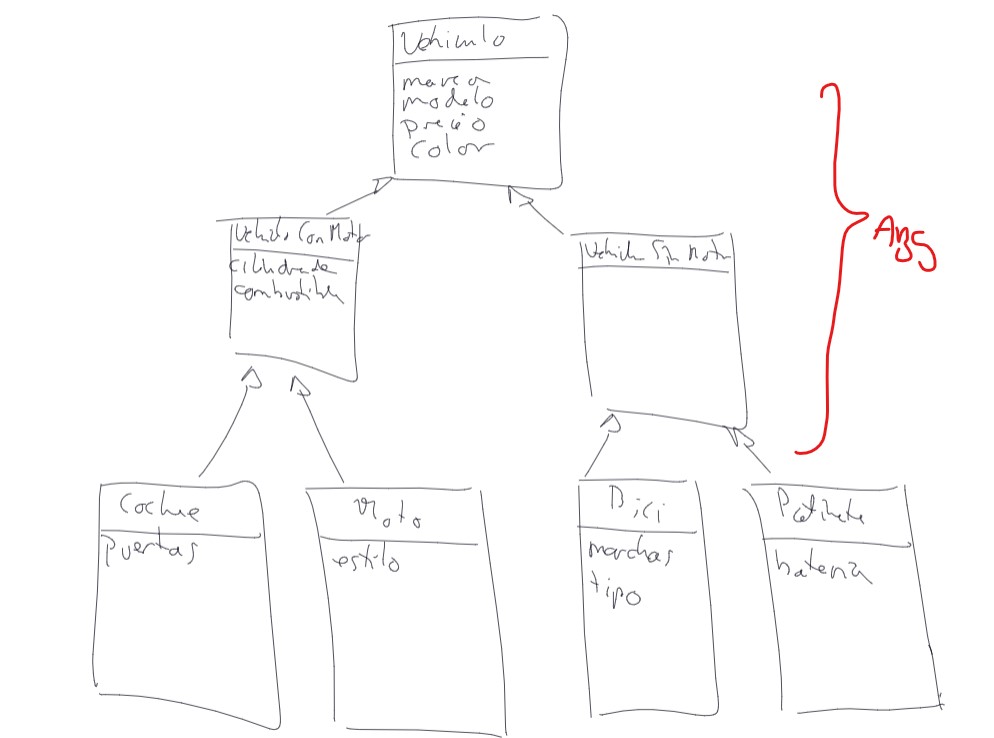 Vehiculo
marca
modelo
precio
color
Vehiculo Con Motor
cilindrada
combustible
Vehiculo Sin Motor
Coche
puertas
Moto
estilo
Bici
marchas
tipo
Patinete
bateria